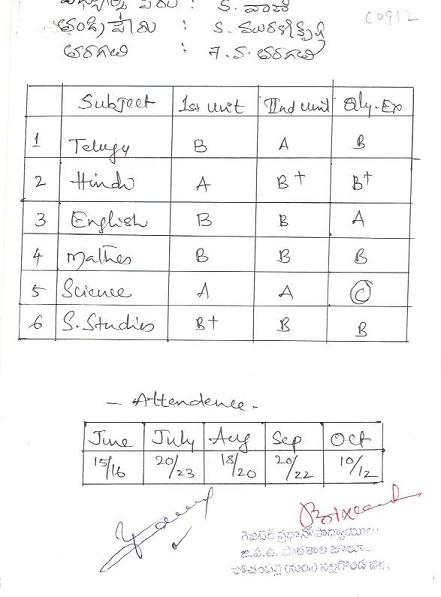 : S. వాణి
తండ్రి పేరు : S. మురళీకృష్ణ
తరగతి : 7వ తరగతి
C0912
Subject 1st unit IInd unit Qly.Ex
1 Telugu B A B
2 Hindi A B+ B+
3 English B B A
4 Mathes B B B
5 Science A A C
6 S.Studies B+ B B
- Attendence -
June July Aug Sep Oct
15/16 20/23 18/20 20/22 10/12